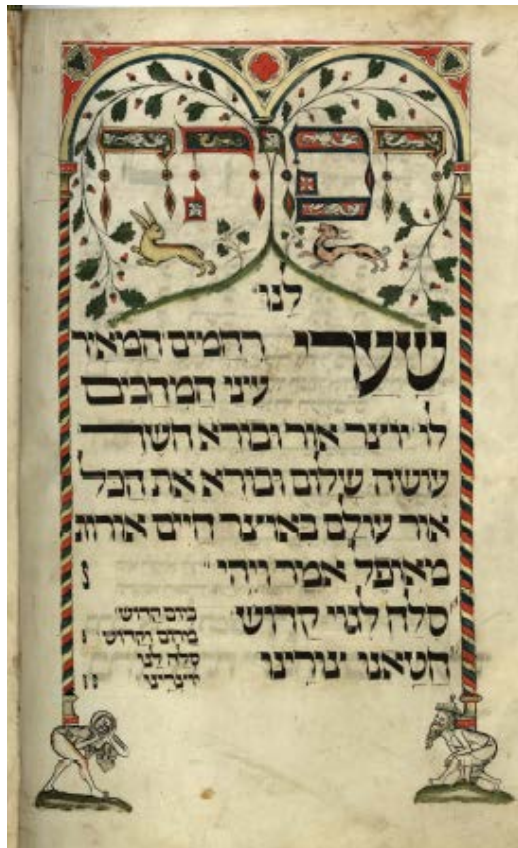 הפותח
לנו
שערי רחמים המאיר
עיני המחכים
לו יוצר אור ובורא חשך
עושה שלום ובורא את הכל
אור עולם באוצר חיים אורות
מאופל אמר ויהי
סלח לגוי קדוש ביום קדוש
במרום וקדוש
חטאנו צורינו סלח לנו
יוצרינו